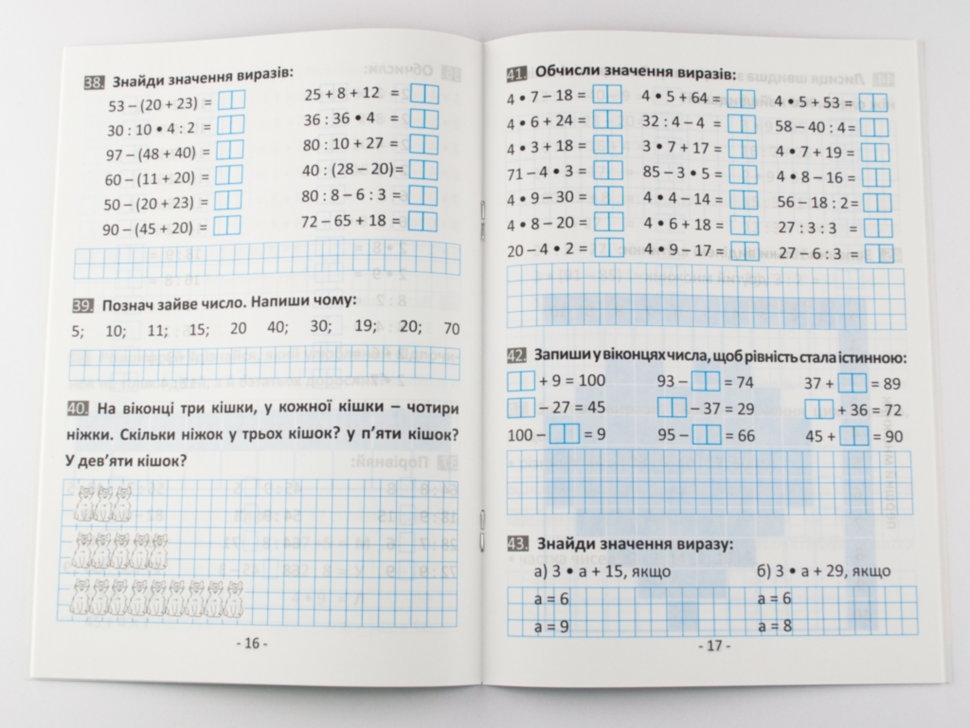 38. Знайди значення виразів:
53 – (20 + 23) =
25 + 8 + 12 =
30 : 10 • 4 : 2 =
36 : 36 • 4 =
97 – (48 + 40) =
80 : 10 + 27 =
60 – (11 + 20) =
40 : (28 – 20)=
50 – (20 + 23) =
80 : 8 – 6 : 3 =
90 – (45 + 20) =
72 – 65 + 18 =
39. Познач зайве число. Напиши чому:
5; 10; 11; 15; 20 40; 30; 19; 20; 70
40. На віконці три кішки, у кожної кішки – чотири
ніжки. Скільки ніжок у трьох кішок? у п’яти кішок?
У дев’яти кішок?
- 16 -
41. Обчисли значення виразів:
4 • 7 – 18 = 4 • 5 + 64 = 4 • 5 + 53 =
4 • 6 + 24 = 32 : 4 – 4 = 58 – 40 : 4=
4 • 3 + 18 = 3 • 7 + 17 = 4 • 7 + 19 =
71 – 4 • 3 = 85 – 3 • 5 = 4 • 8 – 16 =
4 • 9 – 30 = 4 • 4 – 14 = 56 – 18 : 2=
4 • 8 – 20 = 4 • 6 + 18 = 27 : 3 : 3 =
20 – 4 • 2 = 4 • 9 – 17 = 27 – 6 : 3 =
42. Запиши у віконцях числа, щоб рівність стала істинною:
+ 9 = 100 93 – = 74 37 + = 89
– 27 = 45 – 37 = 29 + 36 = 72
100 – = 9 95 – = 66 45 + = 90
43. Знайди значення виразу:
а) 3 • а + 15, якщо б) 3 • а + 29, якщо
а = 6 а = 6
а = 9 а = 8
- 17 -